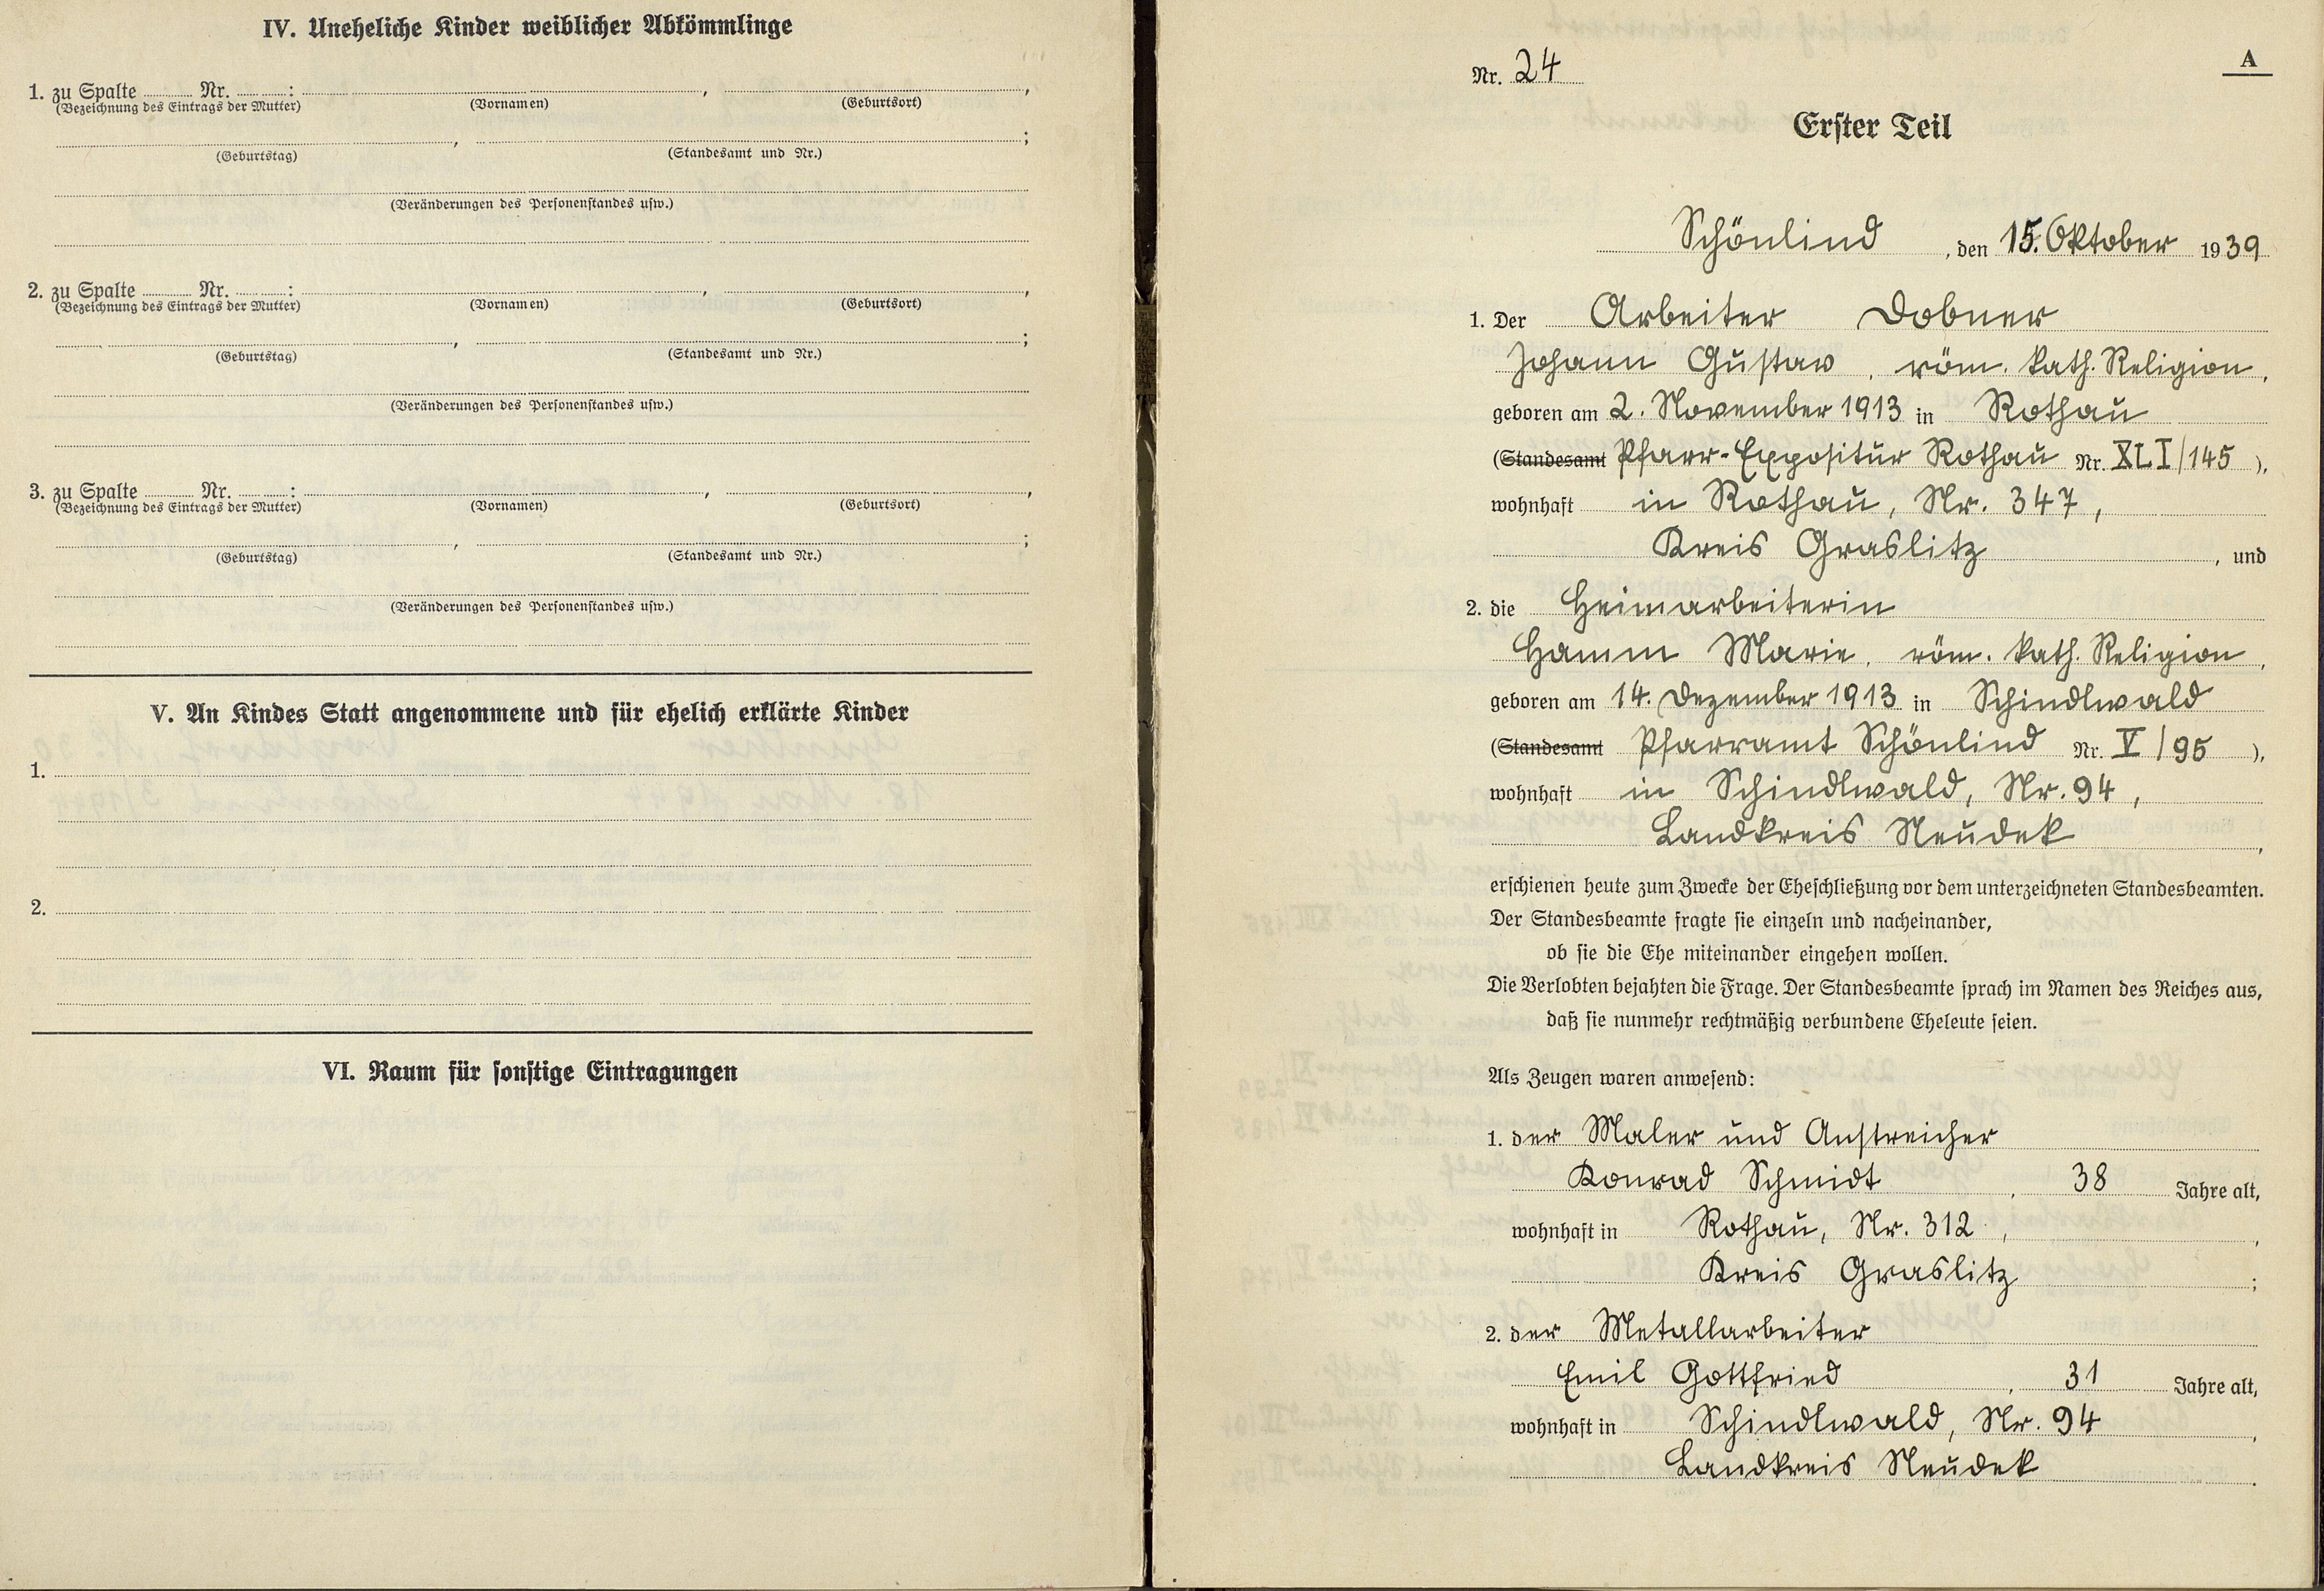 IV. Uneheliche Kinder weiblicher Abkömmlinge
1. zu Spalte Nr. : , ,
(Bezeichnung des Eintrags der Mutter) (Vornamen) (Geburtsort)
, ;
(Geburtstag) (Standesamt und Nr.)
(Veränderungen des Personenstandes usw.)
2. zu Spalte Nr. : , ,
(Bezeichnung des Eintrags der Mutter) (Vornamen) (Geburtsort)
, ;
(Geburtstag) (Standesamt und Nr.)
(Veränderungen des Personenstandes usw.)
3. zu Spalte Nr. : , ,
(Bezeichnung des Eintrags der Mutter) (Vornamen) (Geburtsort)
, ;
(Geburtstag) (Standesamt und Nr.)
(Veränderungen des Personenstandes usw.)
V. An Kindes Statt angenommene und für ehelich erklärte Kinder
1.
2.
VI. Raum für sonstige Eintragungen
A
Nr. 24
Erster Teil
Schönlind , den 15. Oktober 1939
1. Der Arbeiter Dobner
Johann Gustav , röm. kath. Religion ,
geboren am 2. November 1913 in Rothau
(Standesamt Pfarr-Expositur Rothau Nr. XLI/145 ),
wohnhaft in Rothau, Nr. 347,
Kreis Graslitz , und
2. die Heimarbeiterin
Hamm Marie , röm. kath. Religion ,
geboren am 14. Dezember 1913 in Schindlwald
(Standesamt Pfarramt Schönlind Nr. V/95 ),
wohnhaft in Schindlwald, Nr. 94,
Landkreis Neudek ,
erschienen heute zum Zwecke der Eheschließung vor dem unterzeichneten Standesbeamten.
Der Standesbeamte fragte sie einzeln und nacheinander,
ob sie die Ehe miteinander eingehen wollen.
Die Verlobten bejahten die Frage. Der Standesbeamte sprach im Namen des Reiches aus,
daß sie nunmehr rechtmäßig verbundene Eheleute seien.
Als Zeugen waren anwesend:
1. der Maler und Anstreicher
Konrad Schmidt , 38 Jahre alt,
wohnhaft in Rothau, Nr. 312, ,
Kreis Graslitz ;
2. der Metallarbeiter
Emil Gottfried , 31 Jahre alt,
wohnhaft in Schindlwald, Nr. 94 ,
Landkreis Neudek .